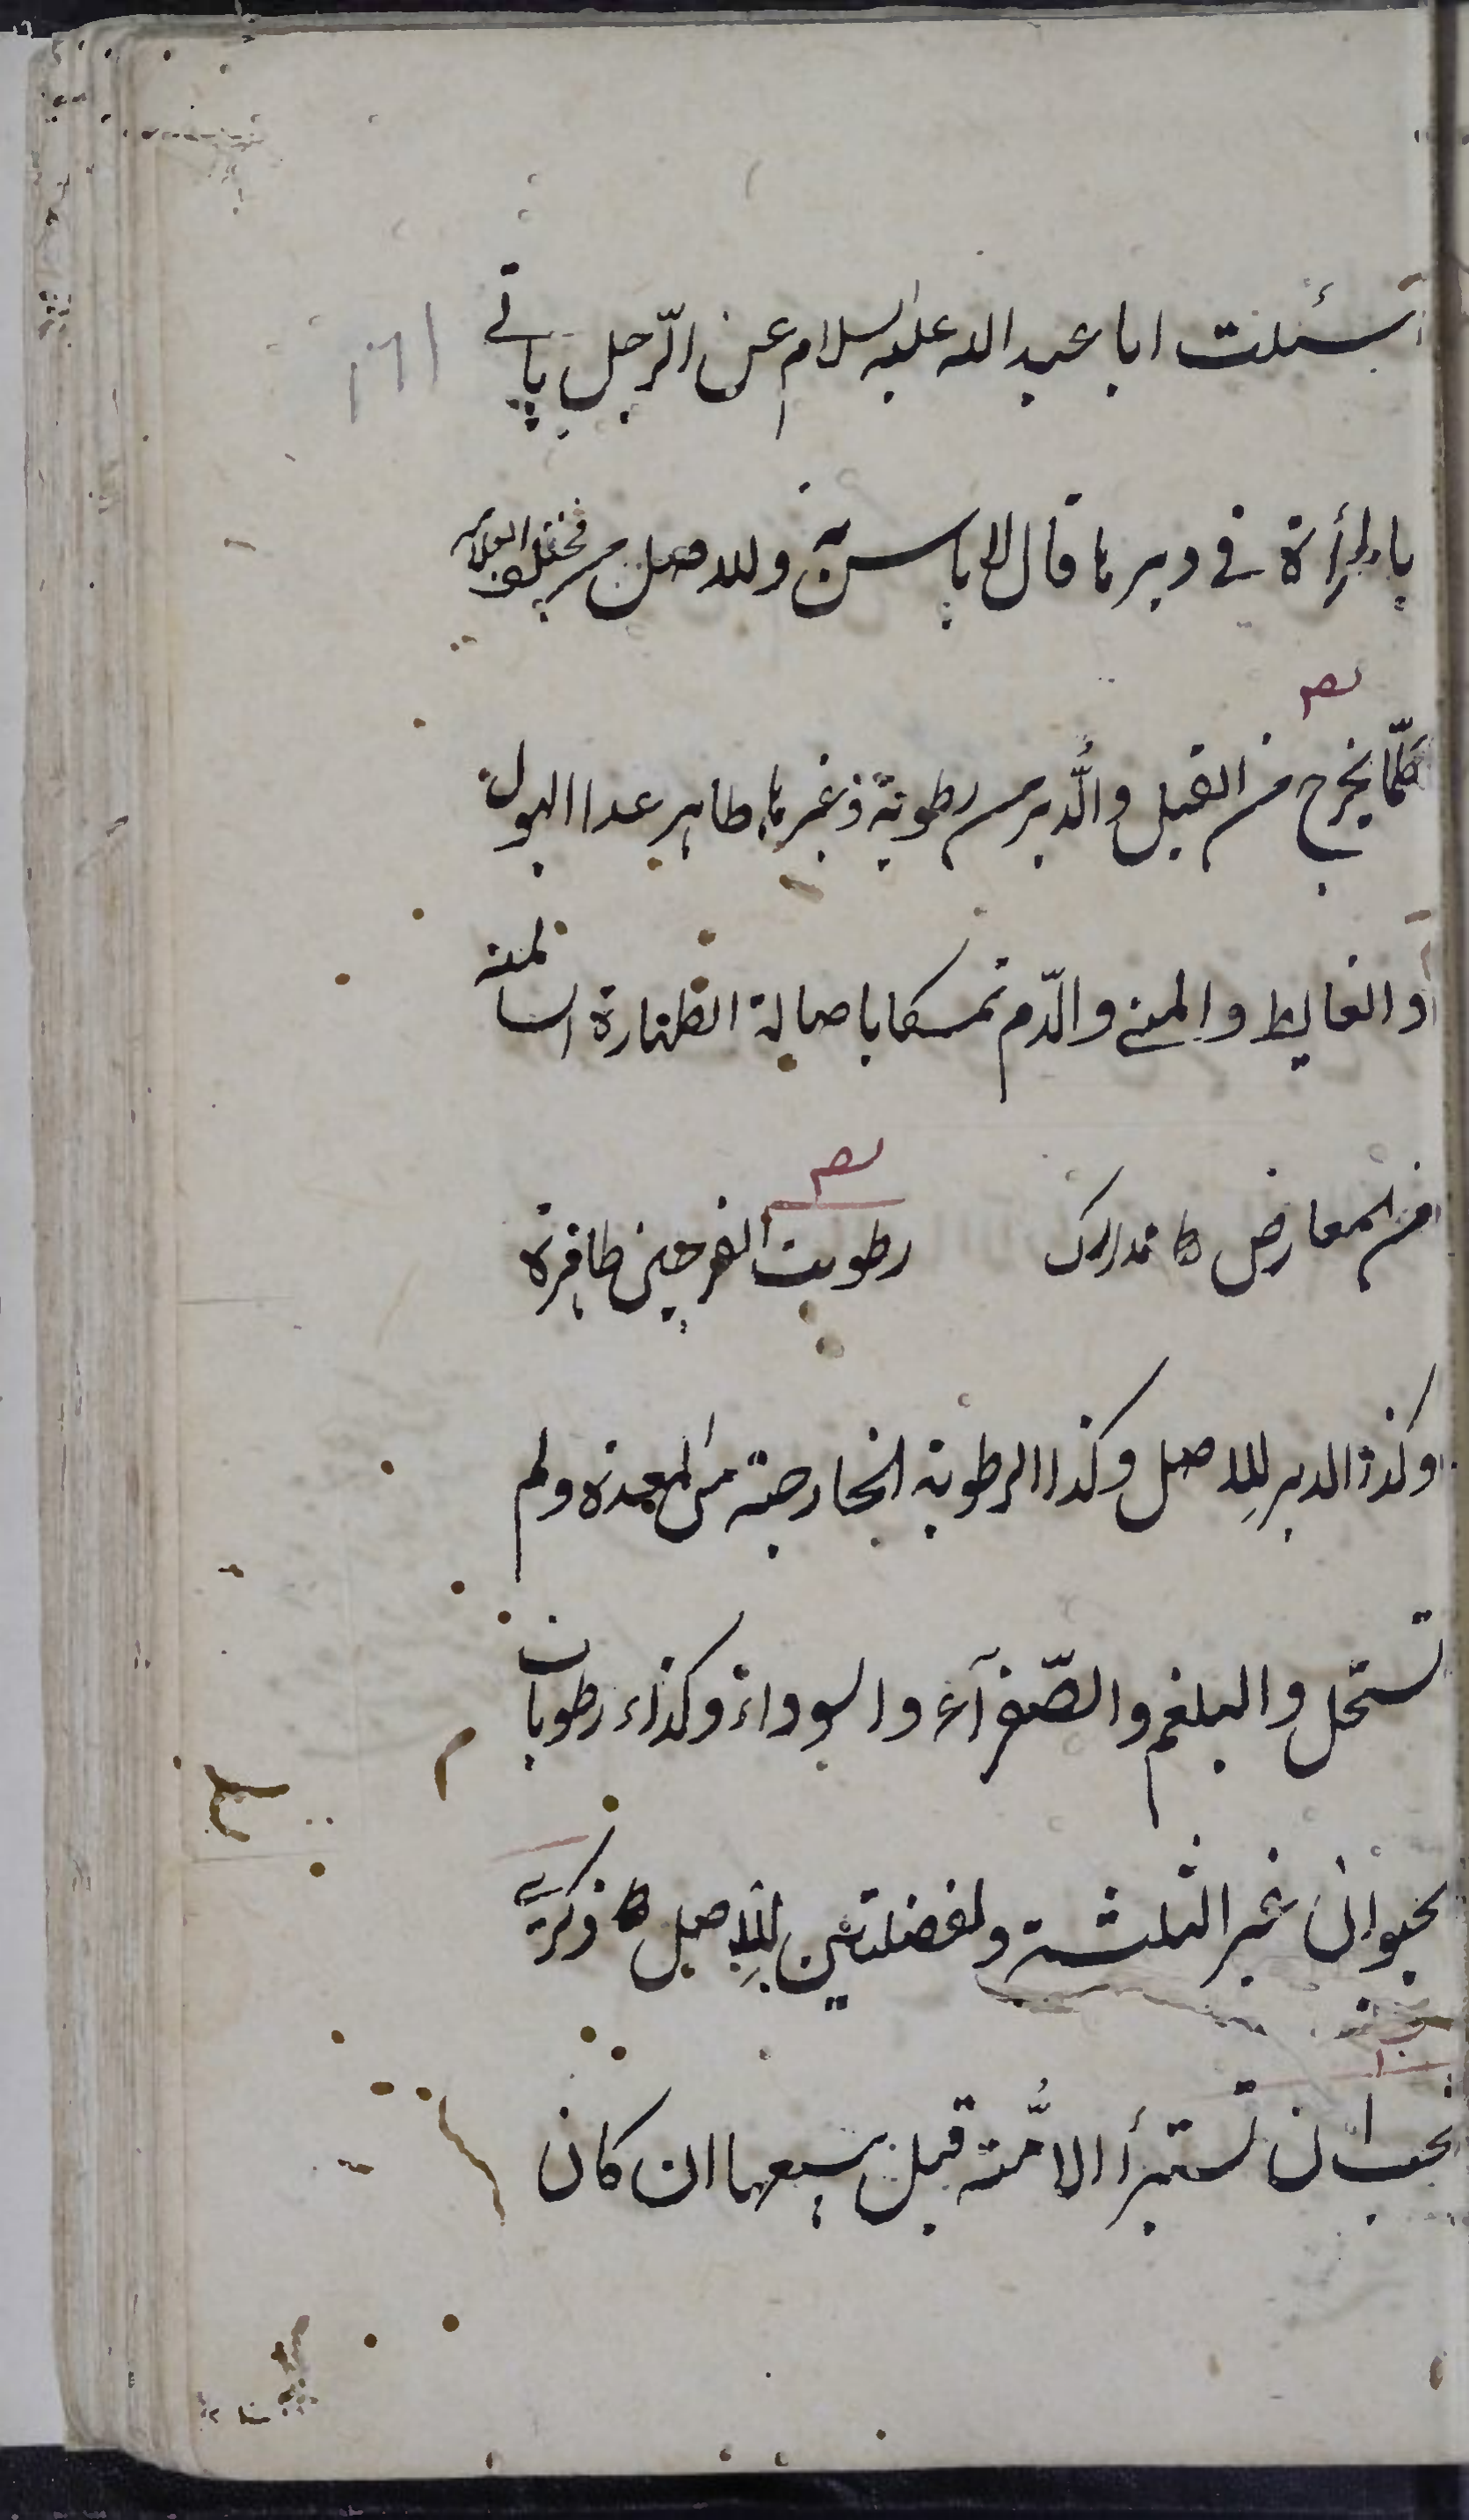 سئلت ابا عبد الله عليه السلام عن الرّجل ياتي
بالمرأة في دبرها قال لا باس به وللاصل مختلف العلامه
كلّما يخرج من القبل والدّبر من رطوبة وغيرها طاهر عدا البول
والغايط والمني والدّم تمسكا باصالة الطهارة السالمة
من المعارض كا مدارك رطوبت الفرجين طاهرة
وكذا الدبر للاصل وكذا الرطوبة الخارجة من المعدة ولم
تستحل والبلغم والصّفرآء والسوداء وكذا رطوبات
الحيوان غير الثلثة ولفضلتين للاصل كا ذكرى
يجب ان تستبرأ الامَّة قبل بيعها ان كان